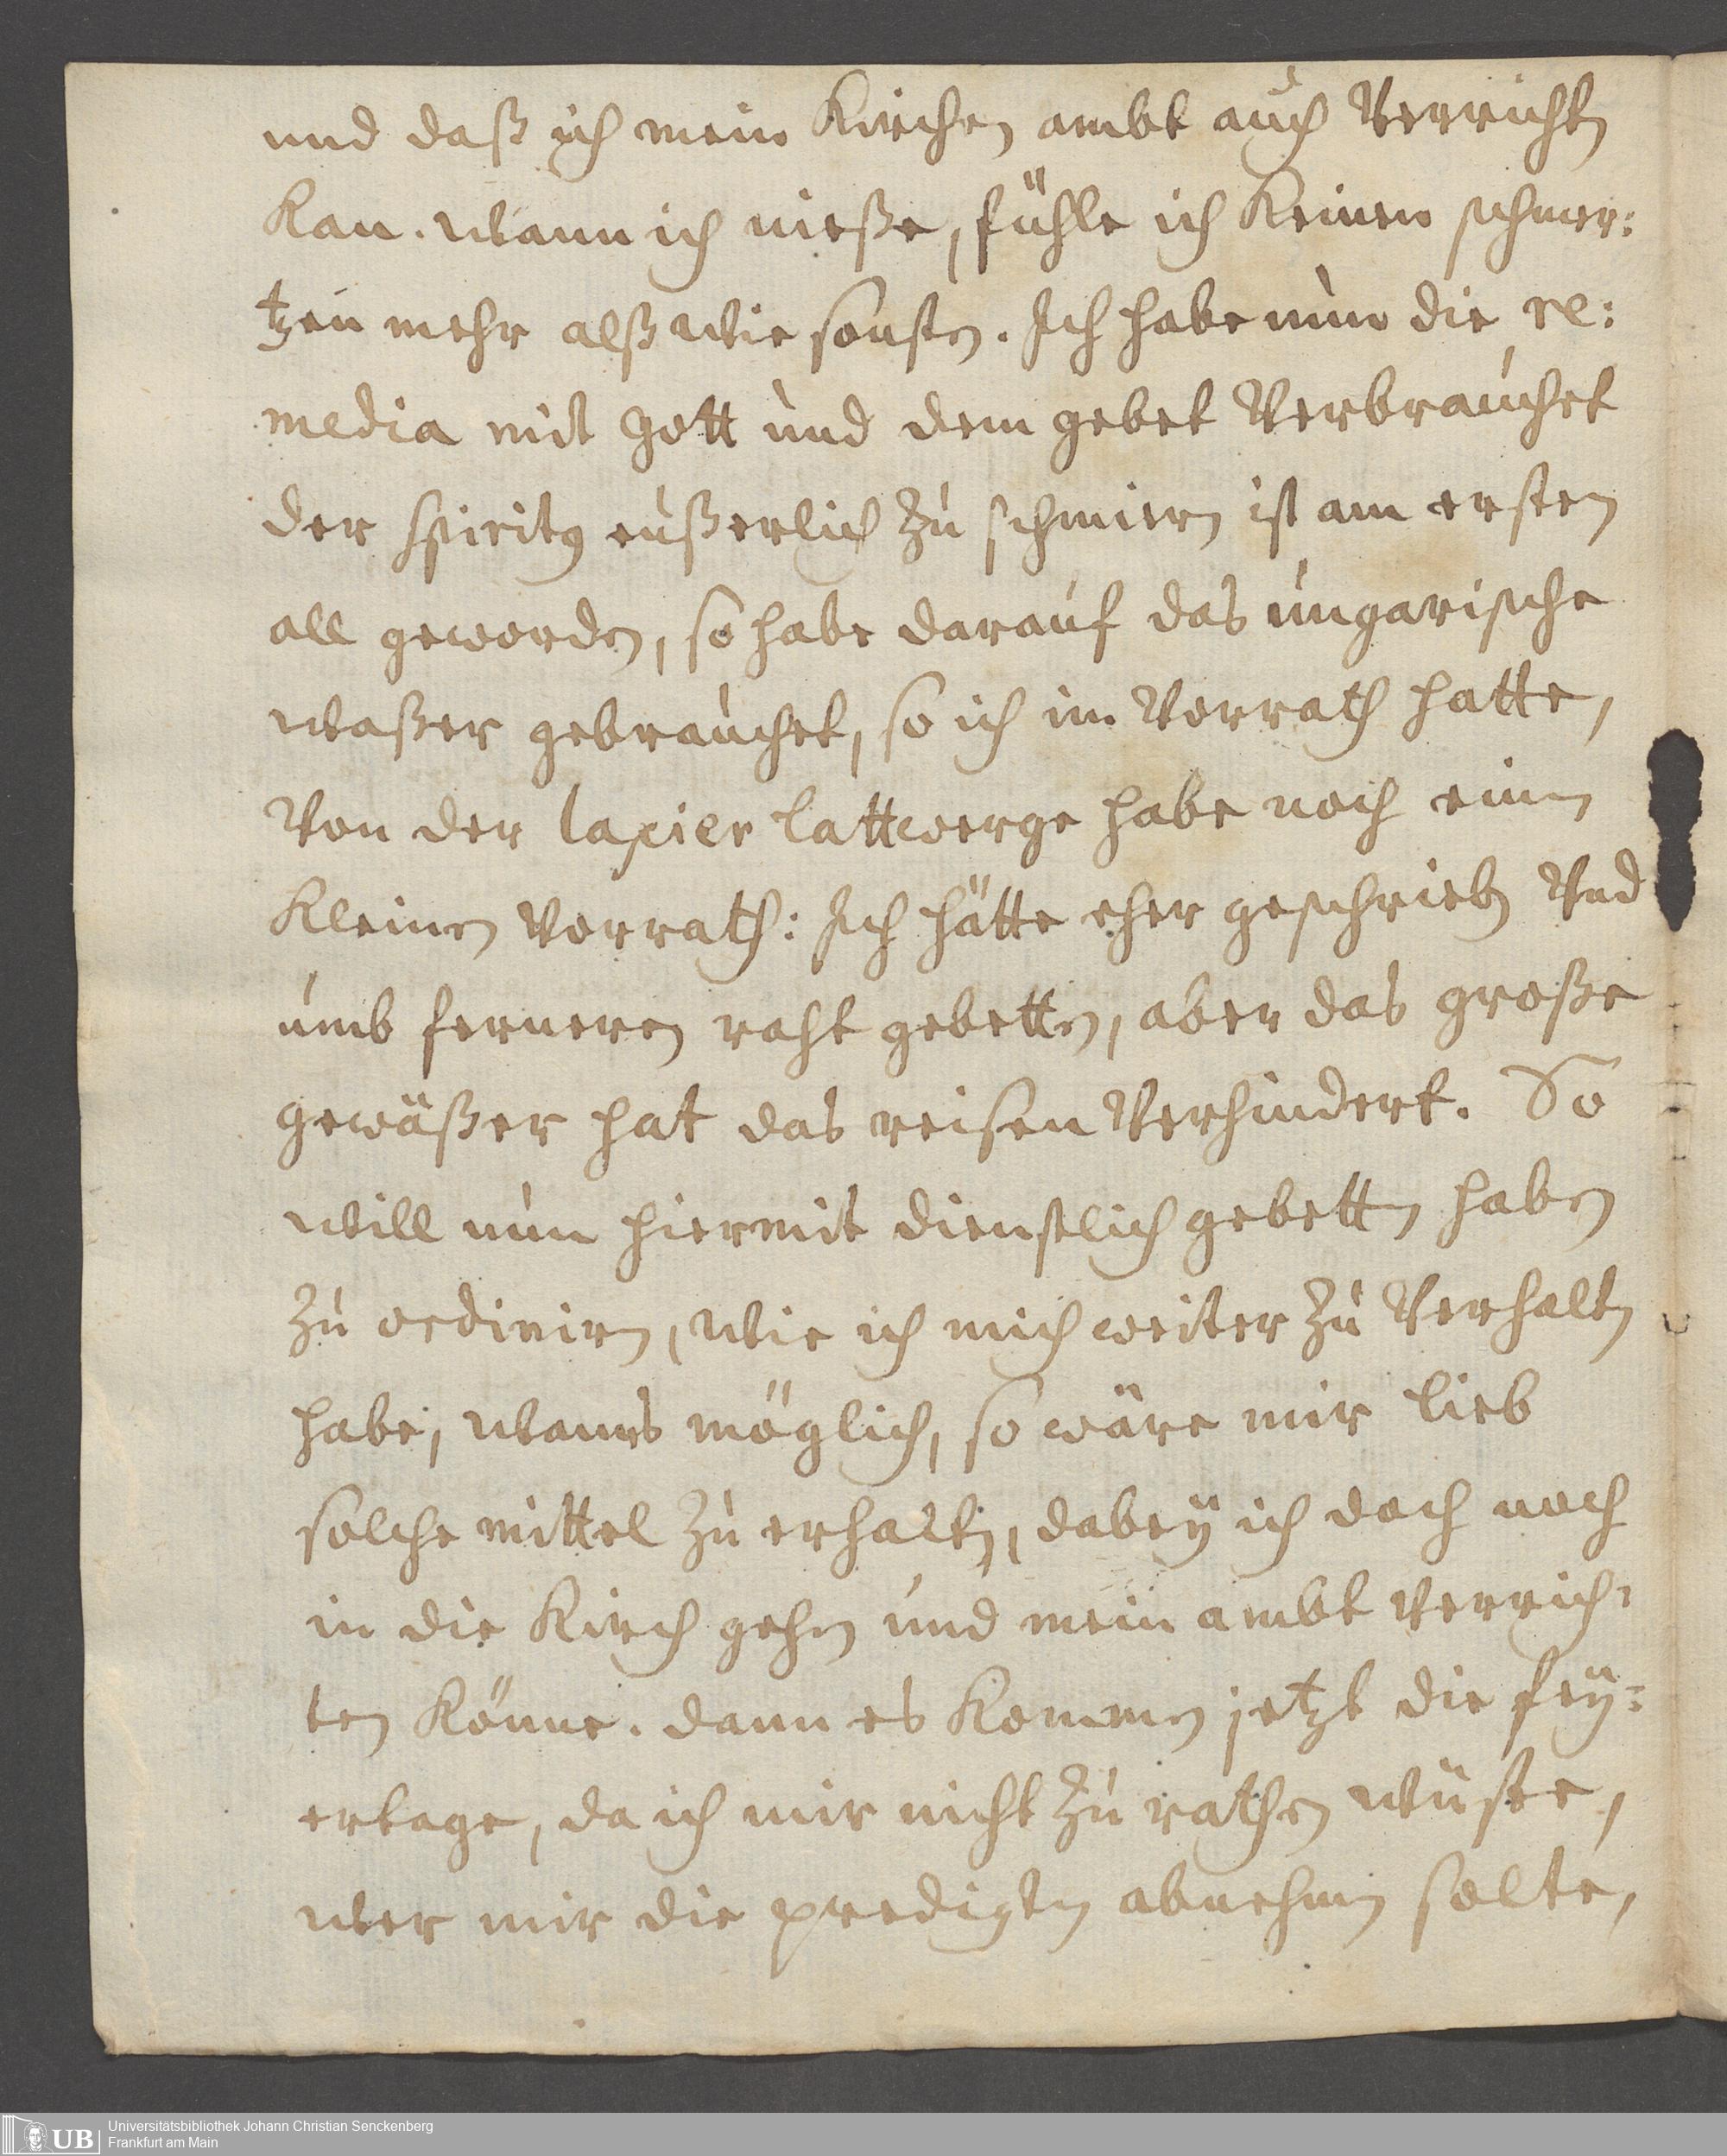 und daß ich mein Kirchen ambt auch Verrichten
Kan. Wann ich nieße, fühle ich Keinen schmer:
tzen mehr alß wie sonsten. Ich habe nun die re:
media mit Gott und dem gebet Verbrauchet
der Spiritus eußerlich zu schmieren ist am ersten
all geworden, so habe darauf das ungarische
Waßer gebrauchet, so ich im Vorrath hatte,
Von der laxier lattwerge habe noch einen
Kleinen Vorrath: Ich hätte eher geschrieben Vnd
umb ferneren raht gebetten, aber das große
gewäßer hat das reisen Verhindert. So
will nun hiermit dienstlich gebetten haben
zu ordiniren, Wie ich mich weiter zu Verhalten
habe, Wanns möglich, so wäre mir lieb
solche mittel zu erhalten, dabey ich doch noch
in die Kirch gehen und mein ambt Verrich:
ten Könne. dann es Kommen jetzt die fey:
ertage, da ich mir nicht zu rathen wüste,
Wer mir die predigten abnehmen solte,
UB Universitätsbibliothek Johann Christian Senckenberg
Frankfurt am Main